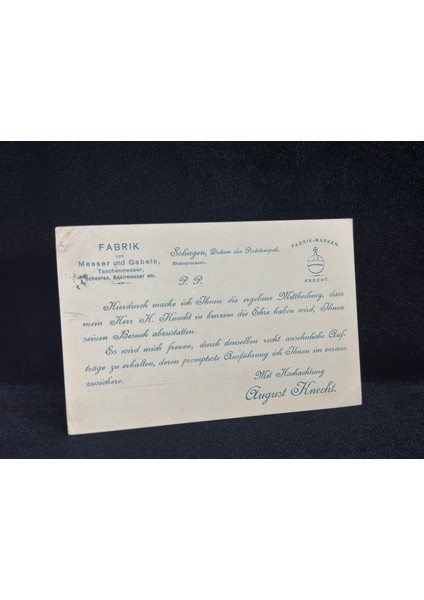 FABRIK
von
Messer und Gabeln,
Taschenmesser,
Scheeren, Rasirmesser etc.
Solingen, Datum des Poststempels.
Rheinpreussen.
FABRIK-MARKEN.
KNECHT.
P. P.
Hierdurch mache ich Ihnen die ergebene Mittheilung, dass
mein Herr K. Knecht in kurzem die Ehre haben wird, Ihnen
seinen Besuch abzustatten.
Es wird mich freuen, durch denselben recht ansehnliche Auf-
träge zu erhalten, deren prompteste Ausführung ich Ihnen im voraus
zusichere.
Mit Hochachtung
August Knecht.